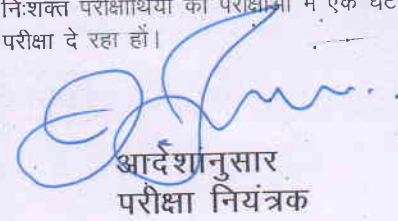 निःशक्त परीक्षार्थियों की परीक्षाओं में एक घंट
परीक्षा दे रहा हों।
आदेशानुसार
परीक्षा नियंत्रक